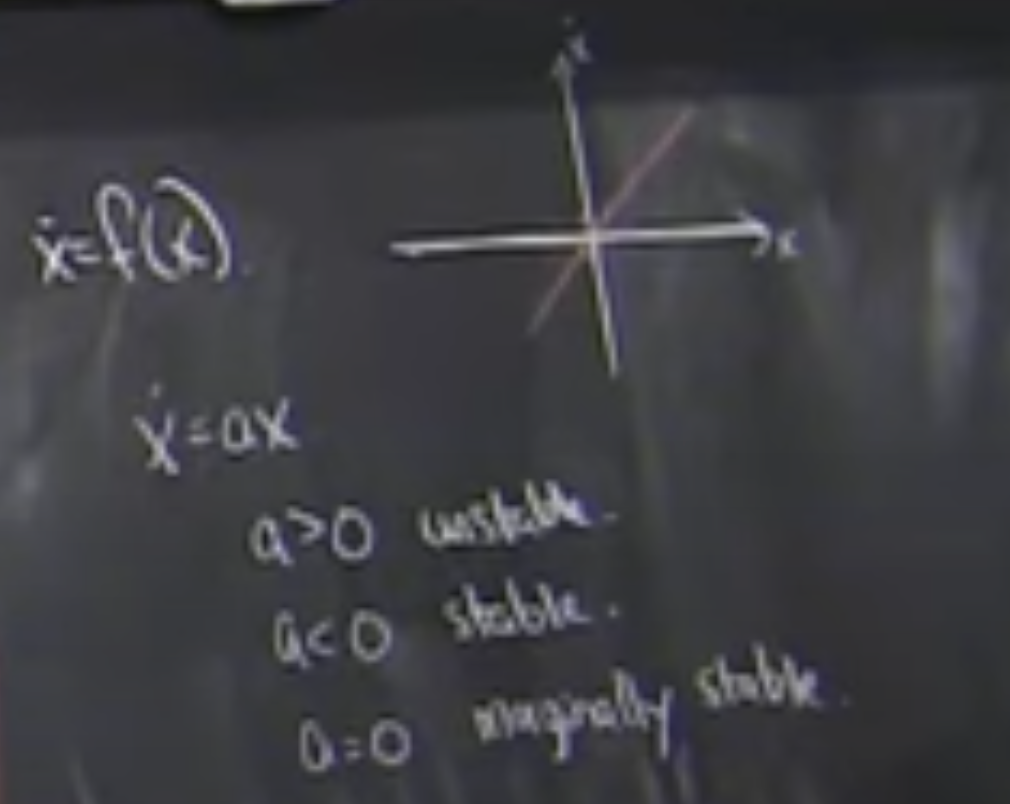 ẋ
ẋ=f(x).
x
ẋ=ax
a>0 unstable.
a<0 stable.
a=0 marginally stable.